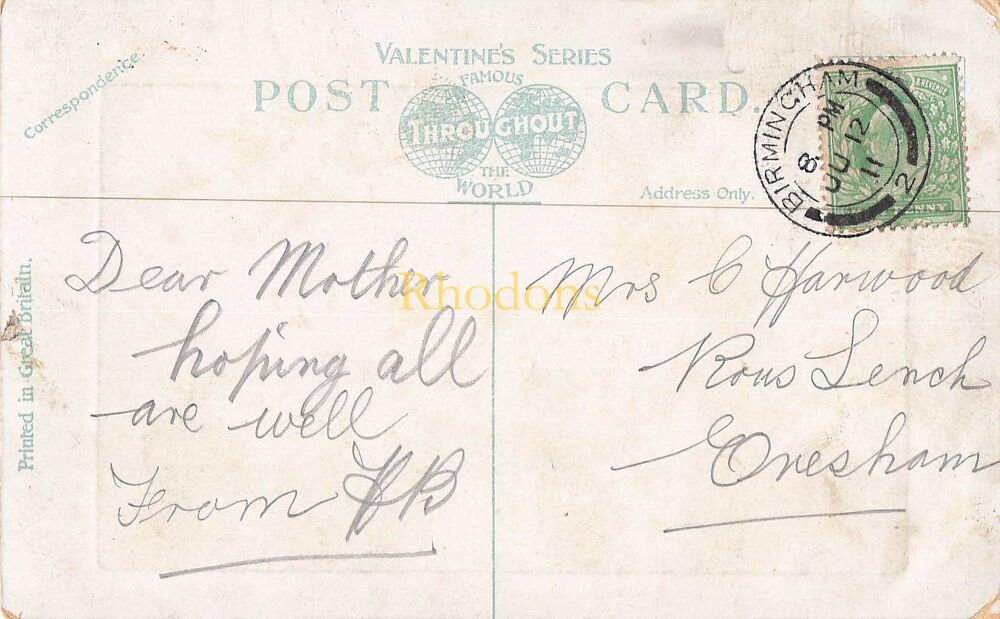 Correspondence.
VALENTINE'S SERIES
POST CARD.
FAMOUS
THROUGHOUT
THE
WORLD
Address Only.
BIRMINGHAM
8 PM
JU 12
11
2
REVENUE
PENNY
Printed in Great Britain.
Dear Mother
hoping all
are well
From HB
Rhodons
Mrs C Harwood
Rous Lench
Evesham